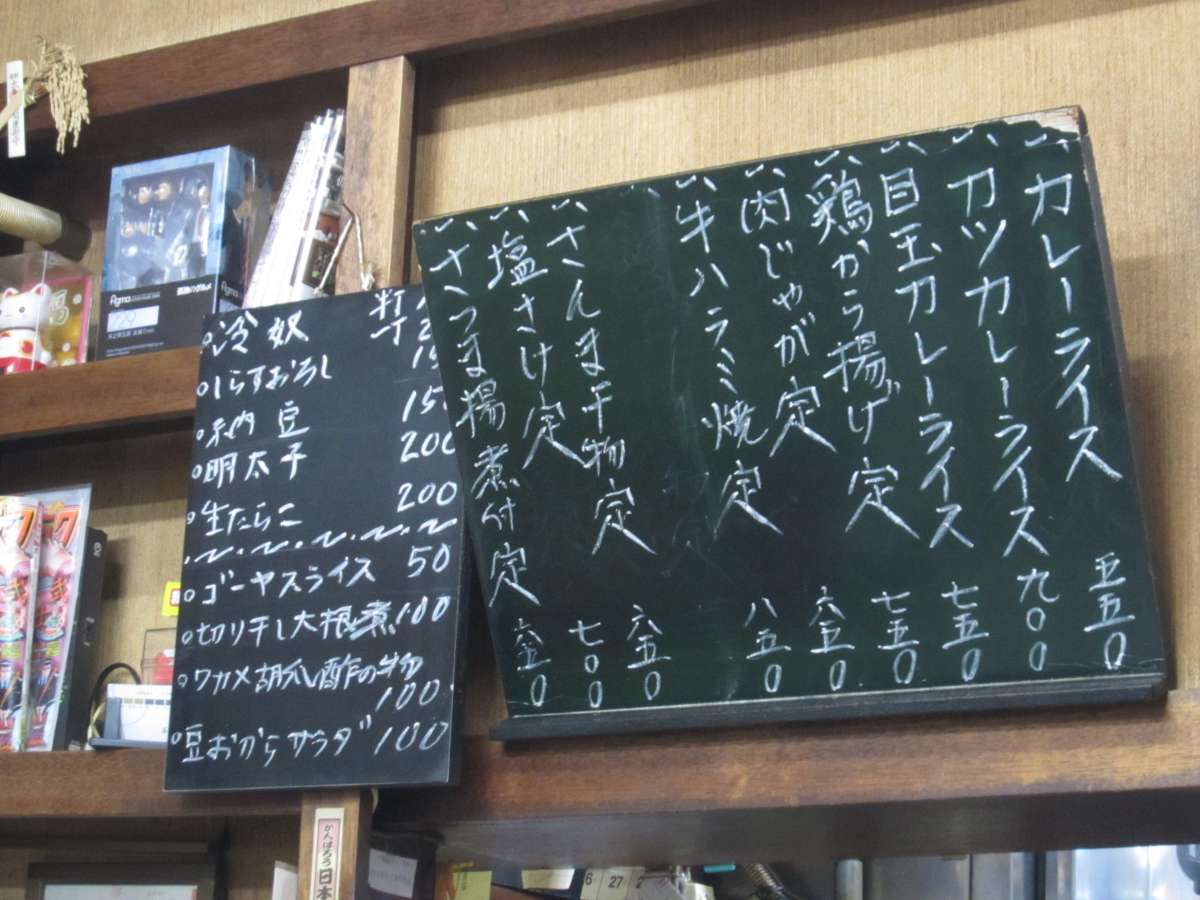 一、カレーライス 五五0
一、カツカレーライス 九00
一、目玉カレーライス 七五0
一、鶏から揚げ定 七五0
一、肉じゃが定 六五0
一、牛ハラミ焼定 八五0
一、さんま干物定 六五0
一、塩さけ定 七00
一、さつま揚煮付定 六五0
冷奴 半丁
しらすおろし
納豆 150
明太子 200
生たらこ 200
ゴーヤスライス 50
切り干し大根煮 100
ワカメ胡瓜酢の物
100
豆おからサラダ 100
figma
がんばろう日本
27